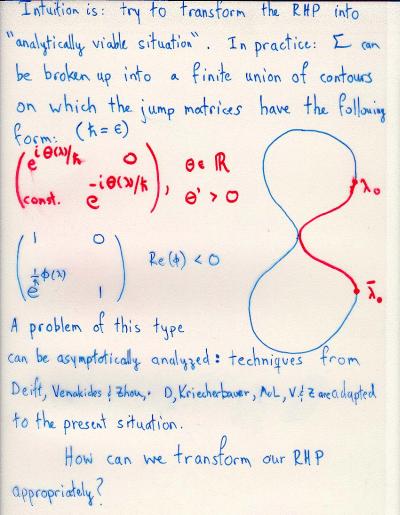 Intuition is: try to transform the RHP into
"analytically viable situation". In practice: Σ can
be broken up into a finite union of contours
on which the jump matrices have the following
form: (ħ = ϵ)
e^{iθ(λ)/ħ} 0
const. e^{-iθ(λ)/ħ} , θ ∈ ℝ
θ' > 0
λ₀
1 0
e^{1/ħ φ(λ)} 1 Re(φ) < 0
λ̄₀
A problem of this type
can be asymptotically analyzed: techniques from
Deift, Venakides & Zhou, D, Kriecherbauer, McL, V & Z are adapted
to the present situation.
How can we transform our RHP
appropriately?